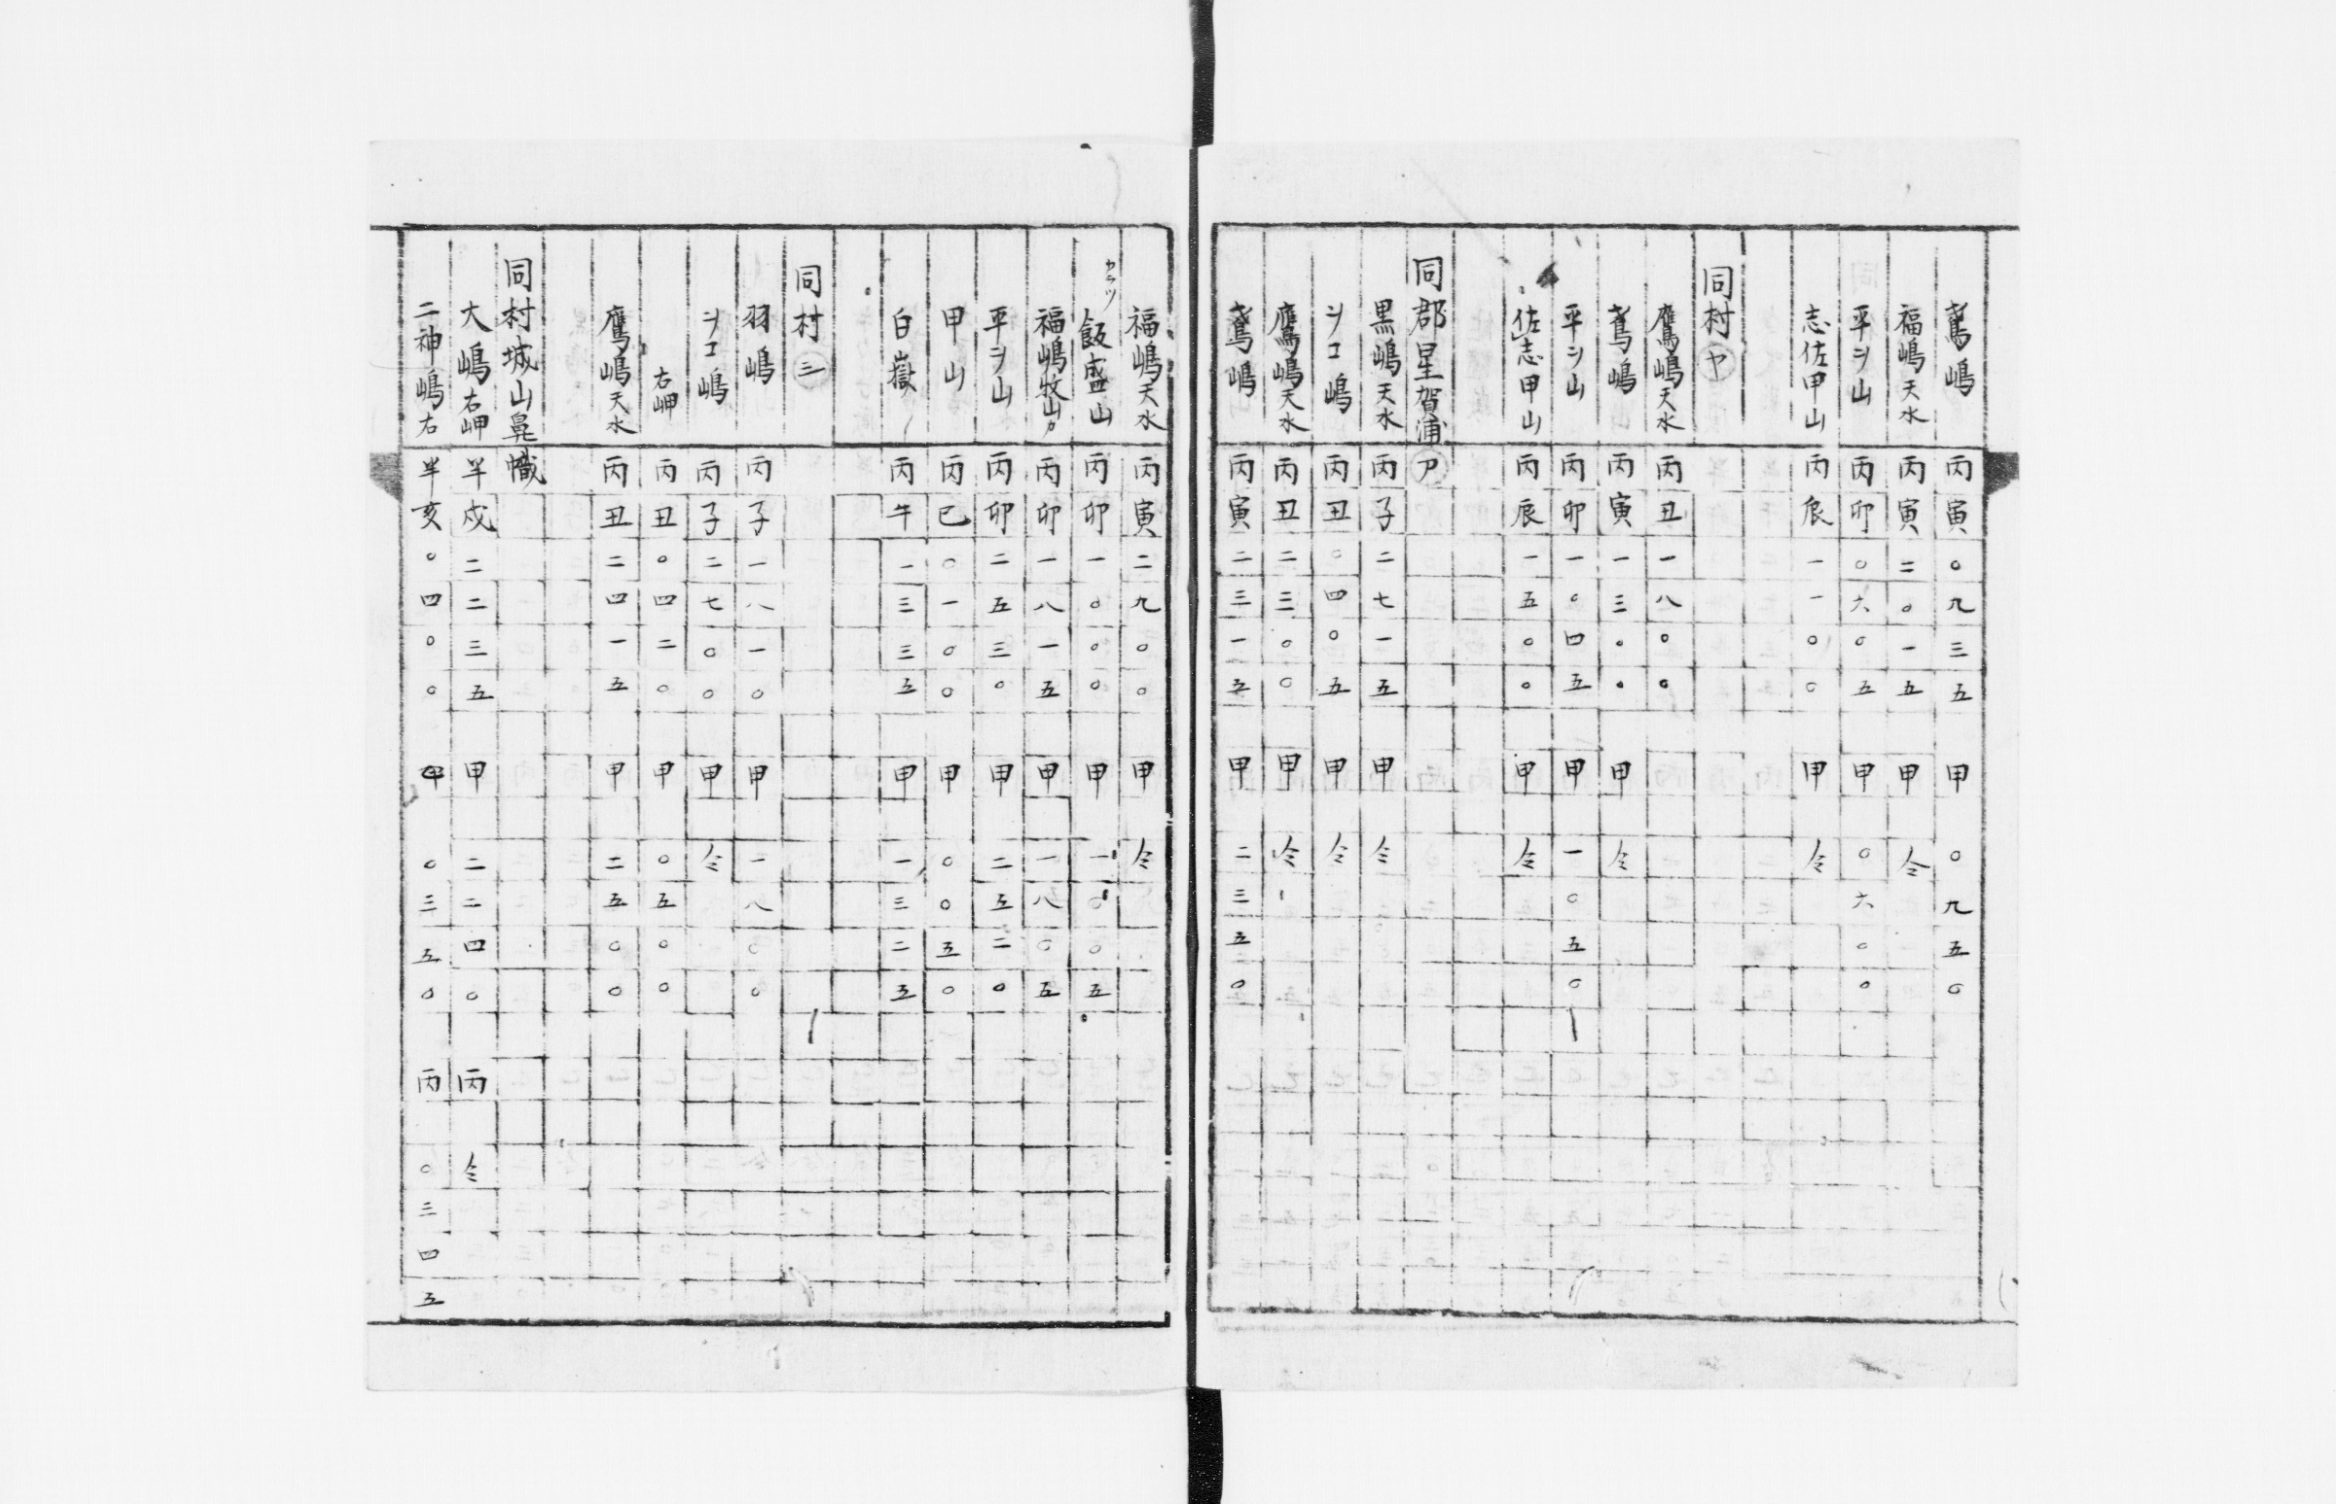 鳶嶋 丙寅〇九三五 甲 〇九五〇
福嶋天水 丙寅二〇一五 甲 仝
平ヲ山 丙卯〇六〇五 甲 〇六〇〇
志佐甲山 丙辰一一〇〇 甲 仝
同村ヤ
鷹嶋天水 丙丑一八〇〇
鳶嶋 丙寅一三〇〇 甲 仝
平ヲ山 丙卯一〇四五 甲 一〇五〇
佐志甲山 丙辰一五〇〇 甲 仝
同郡星賀浦ア
黒嶋天水 丙子二七一五 甲 仝
ヲコ嶋 丙丑〇四〇五 甲 仝
鷹嶋天水 丙丑二三〇〇 甲 仝
鳶嶋 丙寅二三一五 甲 二三五〇
福嶋天水 丙寅二九〇〇 甲 仝
飯盛山 丙卯一〇〇〇 甲 一〇〇五
福嶋牧山カ 丙卯一八一五 甲 一八〇五
平ヲ山 丙卯二五三〇 甲 二五二〇
甲山 丙巳〇一〇〇 甲 〇〇五〇
白嶽 丙午一三三五 甲 一三二五
同村三
羽嶋 丙子一八一〇 甲 一八〇〇
ヲコ嶋 丙子二七〇〇 甲 仝
右岬 丙丑〇四二〇 甲 〇五〇〇
鷹嶋天水 丙丑二四一五 甲 二五〇〇
同村城山鼻幟
大嶋右岬 半戌二二三五 甲 二二四〇 丙 仝
二神嶋右 半亥〇四〇〇 甲 〇三五〇 丙 〇三四五